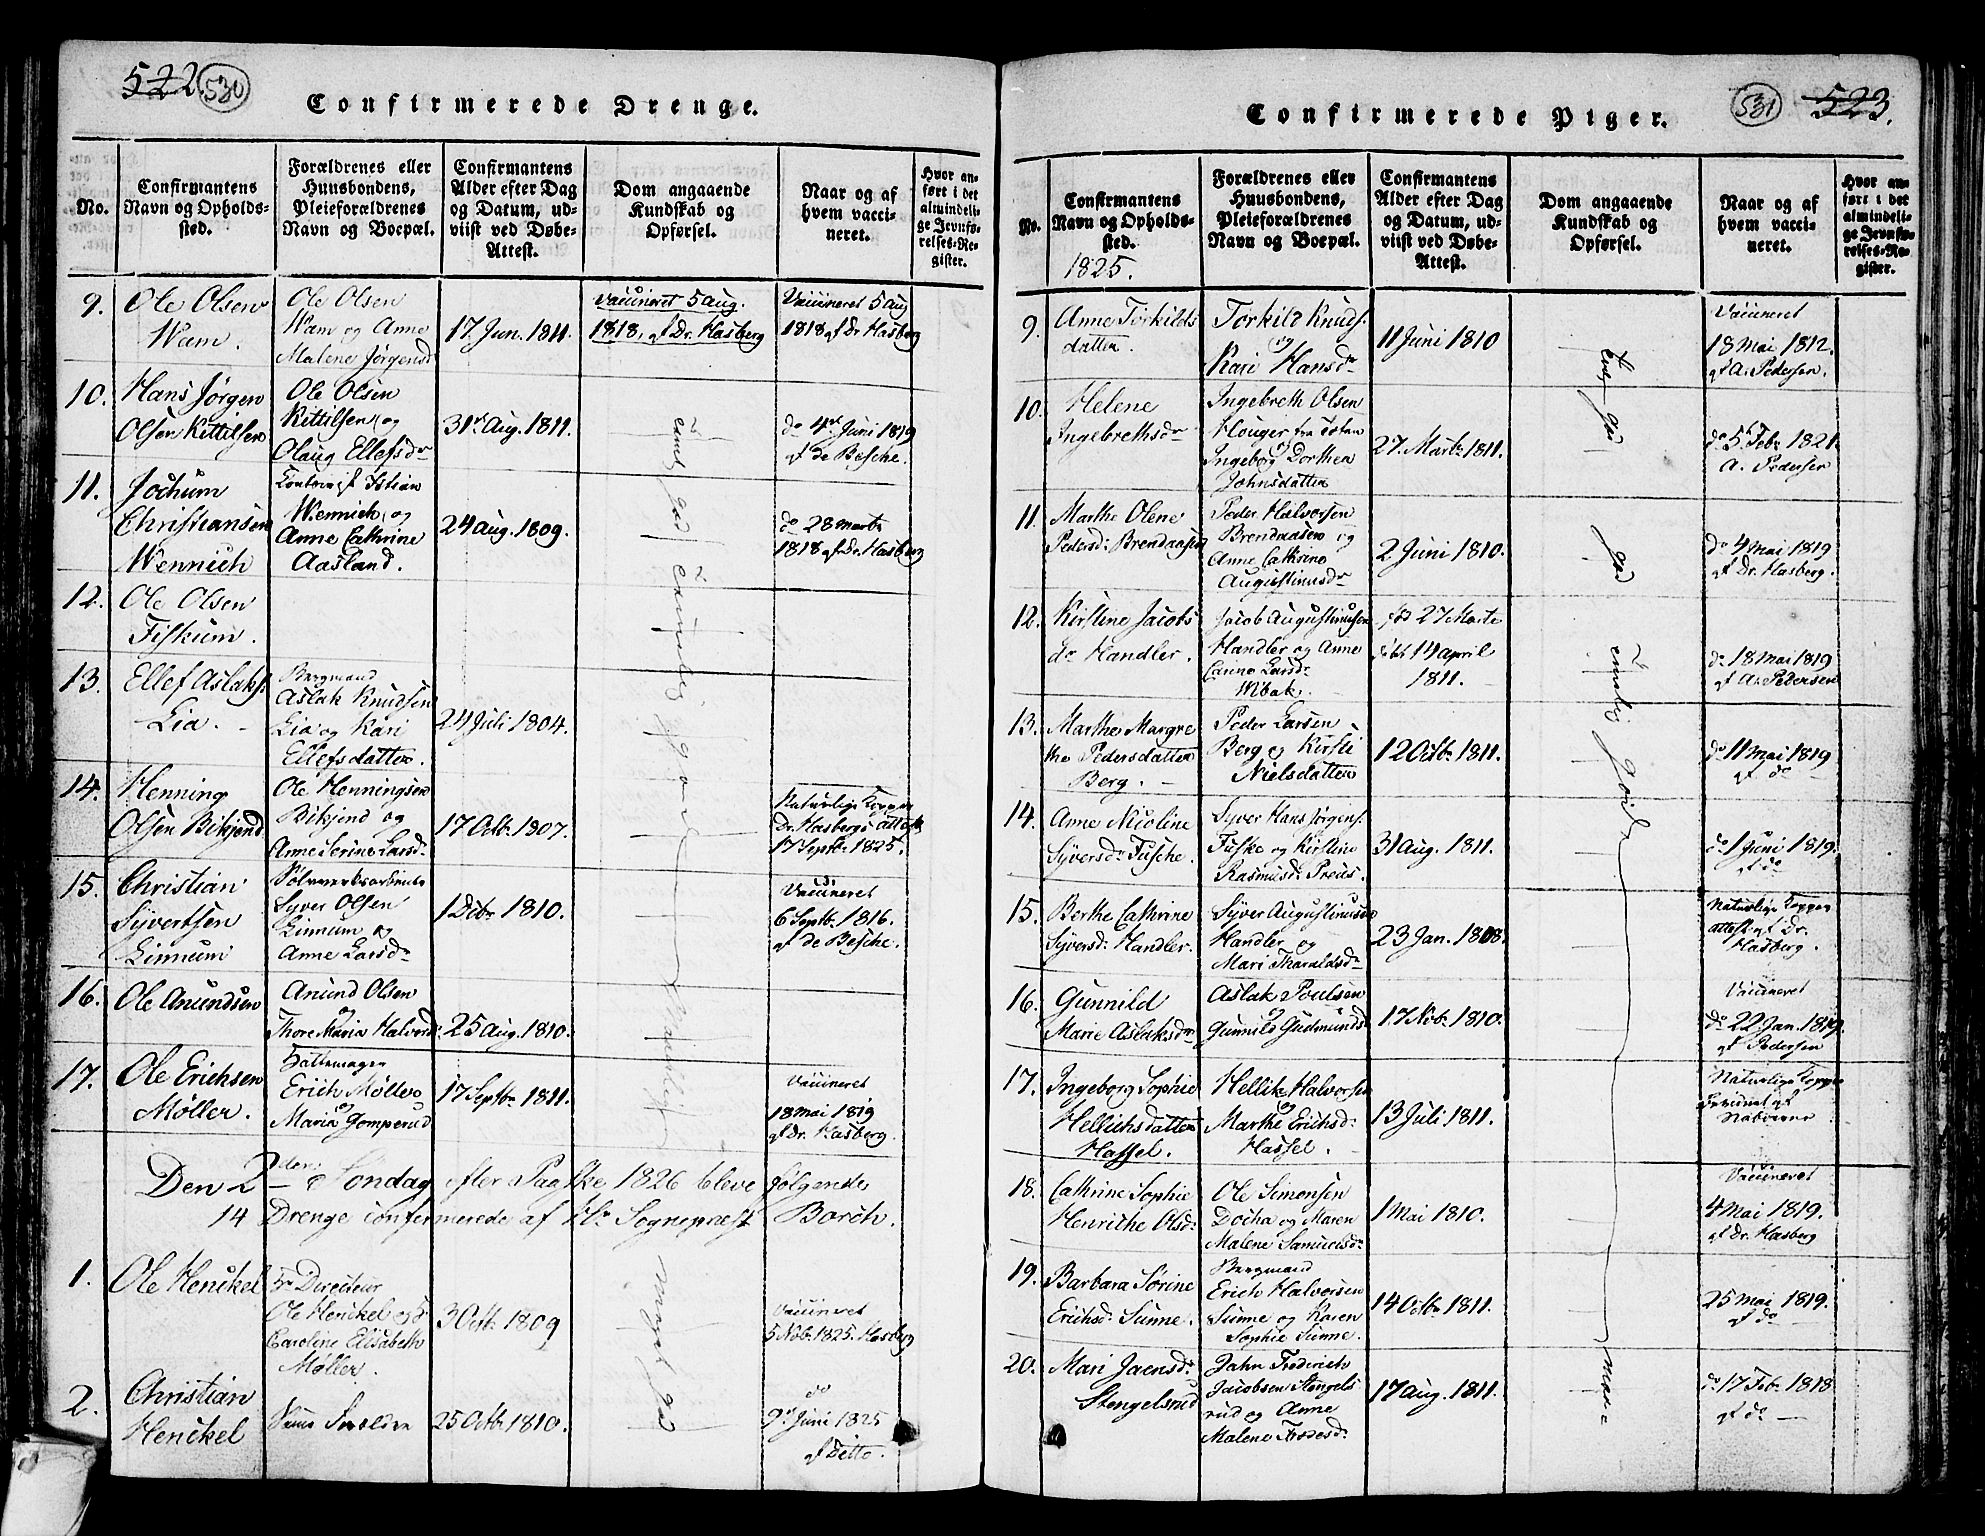 522. 530
Confirmerede Drenge.
No.
Confirmantens Navn og Opholdssted.
Forældrenes eller Huusbondens, Pleieforældrenes Navn og Boepæl.
Confirmantens Alder efter Dag og Datum, udviist ved Døbe-Attest.
Dom angaaende Kundskab og Opførsel.
Naar og af hvem vaccineret.
Hvor anført i det almindelige Jevnførelses-Register.
9.
Ole Olsen
Wam.
Ole Olsen
Wam og Anne
Malene Jørgensd
17. Jun. 1811.
Vaccineret 5 Aug.
1818, af Dr. Hasberg
Vaccineret 5 Aug
1818 af Dr. Hasberg
10.
Hans Jørgen
Olsen Kittilsen
Ole Olsen
Kittilsen og
Olaug Ellefsdr
31 Aug. 1811.
do 4 Juni 1819
af de Besche.
11.
Jochum
Christiansen
Wennich
Wennich og
Anne Cathrine
Aasland.
24 Aug. 1809.
do 28 Marts
1818 af Dr. Hasberg
12.
Ole Olsen
Fiskum.
13.
Ellef Aslaks.
Lia.
Bergmand
Aslak Knudsen
Lia og Kari
Ellefsdatter.
24 Juli 1804.
14.
Henning
Olsen Bikjend
Ole Henningsen
Bikjend og
Anne Serine Larsd.
17 Octb. 1807.
Naturlige Kopper
Dr. Hasbergs Attest
17 Septbr. 1825.
15.
Christian
Syvertsen
Linnum
Sølvverksarbeider
Syver Olsen
Linnum og
Anne Larsdr
1 Decbr 1810.
Vaccineret
6 Septb. 1816.
af de Besche.
16.
Ole Anundsen
Anund Olsen
og
Thore Maria Halvord.
25 Aug. 1810.
17.
Ole Erichsen
Møller.
Hattemager
Erich Møller
og
Maria Gomperud
17 Septbr 1811.
Vaccineret
18 Mai 1819
af Dr. Hasberg.
Den 2den Søndag efter Paaske 1826 bleve følgende
14 Drenge confermerede af Hr. Sognepræst Borch.
1.
Ole Henckel
Hr. Directeur
Ole Henckel og
Caroline Elisabeth
Møller.
3 Octb. 1809
meget god
Vaccineret
5 Nob. 1825. Hasberg
2.
Christian
Henckel
Samme Forældre
25 Octb. 1810.
do
9 Juni 1825
af Ditto.
531 523.
Confirmerede Piger.
No.
Confirmantens Navn og Opholdssted.
1825.
Forældrenes eller Huusbondens, Pleieforældrenes Navn og Boepæl.
Confirmantens Alder efter Dag og Datum, udviist ved Døbe-Attest.
Dom angaaende Kundskab og Opførsel.
Naar og af hvem vaccineret.
Hvor anført i det almindelige Jevnførelses-Register.
9.
Anne Torkilds
datter.
Torkild Knuds.
og
Kari Hansdr
11 Juni 1810
Vaccineret
18 Mai 1812.
af A. Pedersen.
10.
Helene
Ingebrethsdr
Ingebreth Olsen
Houger fra Toten
Ingeborg Dorthea
Johnsdatter
27. Marts 1811.
do 5 Febr. 1821.
A. Pedersen
11.
Marthe Olene
Pedersd. Brendaasen
Peder Halvorsen
Brendaasen og
Anne Cathrine
Augustinusdr
2 Juni 1810.
god
do 4 Mai 1819
af Dr. Hasberg.
12.
Kirstine Jacobs
dr Handler.
Jacob Augustinusen
Handler og Anne
Carine Larsdr
Wibak.
fød 27 Marts
døbt 14 april
1811.
do 18 Mai 1819
af A. Pedersen
13.
Marthe Margre
the Pedersdatter
Berg.
Peder Larsen
Berg og Kirsti
Nielsdatter
12 Octb. 1811.
do 11 Mai 1819
af do
14.
Anne Nicoline
Syversdr Fusche.
Syver Hans Jørgens.
Fuske og Kirstine
Rasmusd. Preus.
31 Aug. 1811.
do 1 Juni 1819.
af do
15.
Berthe Cathrine
Syversd. Handler.
Syver Augustinusen
Handler og
Mari Tharaldsdr
23 Jan. 1808.
Naturlige Kopper
attest af Dr.
Hasberg.
16.
Gunnild
Marie Aslaksdr
Aslak Poulsen
og
Gunnild Gudmunds
17 Nob. 1810.
Vaccineret
do 22 Jan. 1819.
af Pedersen
17.
Ingeborg Sophie
Hellichsdatter
Hassel.
Hellik Halvorsen
og
Marthe Erichsd.
Hassel.
13 Juli 1811.
Naturlige Kopper
18.
Cathrine Sophie
Henrithe Olsd.
Ole Simonsen
Docka og Maren
Malene Samuelsdr
1 Mai 1810.
Vaccineret
4 Mai 1819.
af Dr. Hasberg
19.
Barbara Sørine
Erichsd. Sunne.
Bergmand
Erich Halvorsen
Sunne og Karen
Sophie Sunne.
14 Octb. 1811.
25 Mai 1819.
af do
20.
Mari Jaensdr
Stengelsrud
Jahn Frederich
Jacobsen Stengels
rud og Anne
Malene Frodesd.
17 Aug. 1811.
do 17 Feb. 1818
af do